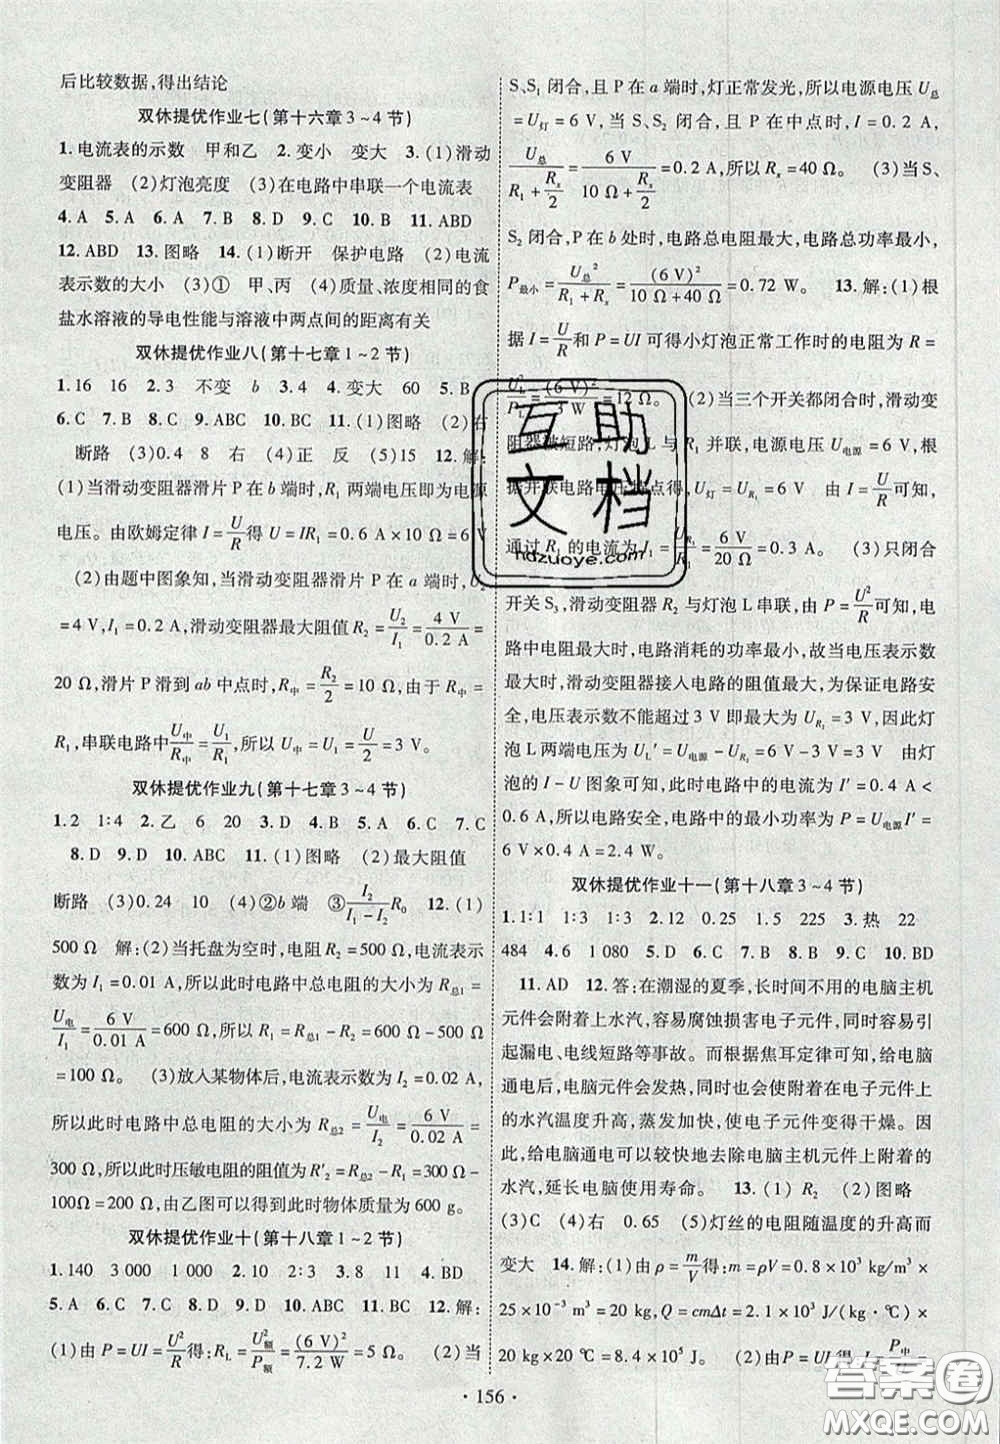 后比较数据,得出结论
双休提优作业七(第十六章3~4节)
1.电流表的示数 甲和乙 2.变小 变大 3.(1)滑动
变阻器 (2)灯泡亮度 (3)在电路中串联一个电流表
4.A 5.A 6.A 7.B 8.B 9.C 10.B 11.ABD
12.ABD 13.图略 14.(1)断开 保护电路 (2)电流
表示数的大小 (3)① 甲、丙 (4)质量、浓度相同的食
盐水溶液的导电性能与溶液中两点间的距离有关
双休提优作业八(第十七章1~2节)
1.16 16 2.3 不变 b 3.4 4.变大 60 5.B
6.C 7.B 8.C 9.ABC 10.BC 11.(1)图略 (2)右
断路 (3)0.4 8 右 (4)正 反 (5)15 12.解:
(1)当滑动变阻器滑片P在b端时,R₁两端电压即为电源
电压。由欧姆定律 I=U/R得 U=IR₁=0.6 A×10 Ω=6 V
(2)由题中图象知,当滑动变阻器滑片P在a端时,U₂
=4 V,I₁=0.2 A,滑动变阻器最大阻值 R₂=U₂/I₁=4 V/0.2 A=
20 Ω,滑片P滑到ab中点时,R中=R₂/2=10 Ω,由于R中=
R₁,串联电路中U中/R中=U₁/R₁,所以U中=U₁=U/2=3 V。
双休提优作业九(第十七章3~4节)
1.2 1:4 2.乙 6 20 3.D 4.B 5.A 6.C 7.C
8.D 9.D 10.ABC 11.(1)图略 (2)最大阻值
断路 (3)0.24 10 (4)②b端 ③I₂/(I₁-I₂)R₀ 12.(1)
500 Ω 解:(2)当托盘为空时,电阻R₂=500 Ω,电流表示
数为I₁=0.01 A,所以此时电路中总电阻的大小为R总1=
U电/I₁=6 V/0.01 A=600 Ω,所以R₁=R总1-R₂=600 Ω-500 Ω
=100 Ω。 (3)放入某物体后,电流表示数I₂=0.02 A,
所以此时电路中总电阻的大小为R总2=U电/I₂=6 V/0.02 A=
300 Ω,所以此时压敏电阻的阻值R'₂=R总2-R₁=300 Ω-
100Ω=200 Ω,由乙图可以得到此时物体质量为600 g。
双休提优作业十(第十八章1~2节)
1.140 3 000 1 000 2.10 2:3 3.8 11 4.BD
5.A 6.A 7.D 8.D 9.C 10.D 11.BC 12.解:
(1)由P=UI=U²/R得:R_L=U额²/P额=(6 V)²/7.2 W=5 Ω。 (2)当
S、S₁闭合,且P在a端时,灯正常发光,所以电源电压U总
=U灯=6 V,当S、S₂闭合,且P在中点时,I=0.2 A,
U总/(R₁+Rₓ/2)=6 V/(10 Ω+Rₓ/2)=0.2 A,所以Rₓ=40 Ω。 (3)当S、
S₂闭合,P在b处时,电路总电阻最大,电路总功率最小,
P最小=U总²/(R₁+Rₓ)=(6 V)²/(10 Ω+40 Ω)=0.72 W。 13.解:(1)根
据I=U/R和P=UI可得小灯泡正常工作时的电阻为R=
U_L²/P_L=(6 V)²/3 W=12 Ω。 (2)当三个开关都闭合时,滑动变
阻器被短路,灯泡L与R₁并联,电源电压U电源=6 V,根
据并联电路电压特点得,U灯=U_R₁=6 V 由I=U/R可知,
通过R₁的电流为I₁=U_R₁/R₁=6 V/20 Ω=0.3 A。 (3)只闭合
开关S₃,滑动变阻器R₂与灯泡L串联,由P=U²/R可知,电
路中电阻最大时,电路消耗的功率最小,故当电压表示数
最大时,滑动变阻器接入电路的阻值最大,为保证电路安
全,电压表示数不能超过3 V即最大为U_R₂=3 V,因此灯
泡L两端电压为U_L'=U电源-U_R₂=6 V-3 V=3 V 由灯
泡的I-U图象可知,此时电路中的电流为I'=0.4 A<
0.5 A,所以电路安全,电路中的最小功率为P=U电源I'=
6 V×0.4 A=2.4 W。
双休提优作业十一(第十八章3~4节)
1.1:1 1:3 2.12 0.25 1.5 225 3.热 22
484 4.6 1 080 5.D 6.C 7.B 8.C 9.C 10.BD
11.AD 12.答:在潮湿的夏季,长时间不用的电脑主机
元件会附着上水汽,容易腐蚀损害电子元件,同时容易引
起漏电、电线短路等事故。而根据焦耳定律可知,给电脑
通电后,电脑元件会发热,同时也会使附着在电子元件上
的水汽温度升高,蒸发加快,使电子元件变得干燥。因
此,给电脑通电可以较快地去除电脑主机元件上附着的
水汽,延长电脑使用寿命。 13.(1)R₂ (2)图略
(3)C (4)右 0.65 (5)灯丝的电阻随温度的升高而
变大 14.解:(1)由ρ=m/V得:m=ρV=0.8×10³ kg/m³×
25×10⁻³ m³=20 kg,Q=cmΔt=2.1×10³ J/(kg·℃)×
20 kg×20 ℃=8.4×10⁵ J。 (2)由P=UI得:I=P中/U=
·156·
互助
文档
hdzuoye.com
答案圈
MXQE.COM